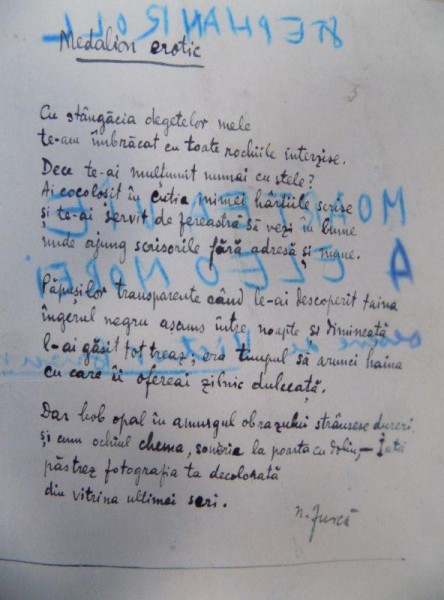 STEPHAN ROLL
Medalion erotic
Cu stângăcia degetelor mele
te-am îmbrăcat cu toate rochiile interzise.
Dece te-ai mulțumit numai cu stele?
Ai cocoloșit în cutia inimei hârtiile scrise
și te-ai servit de fereastră să vezi în lume
unde ajung scrisorile fără adresă și nume.
Păpușilor transparente când le-ai descoperit taina
îngerul negru ascuns între noapte și dimineață
l-ai găsit tot treaz; era timpul să arunci haina
cu care îi ofereai zilnic dulceață.
Dar bob opal în amurgul obrazului strânsese dureri
și cum ochiul chema, soneria la poarta cu doliu, – Iată
păstrez fotografia ta decolorată
din vitrina ultimei seri.